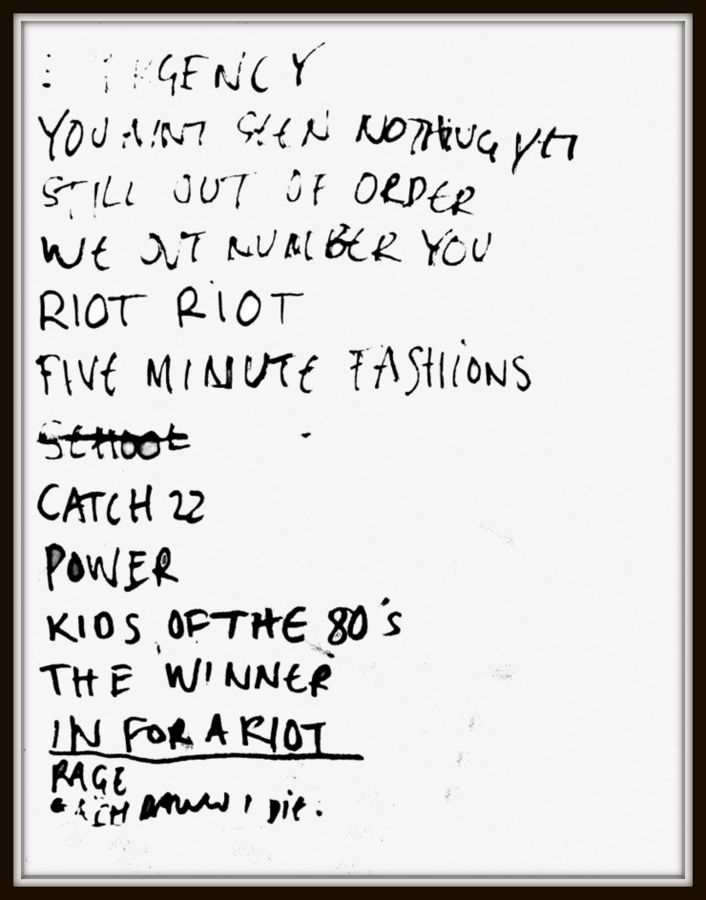 YOU AINT SEEN NOTHING YET
STILL OUT OF ORDER
WE OUT NUMBER YOU
RIOT RIOT
FIVE MINUTE FASHIONS
SCHOOL
CATCH 22
POWER
KIDS OF THE 80's
THE WINNER
IN FOR A RIOT
RAGE
EACH DAWN I DIE.